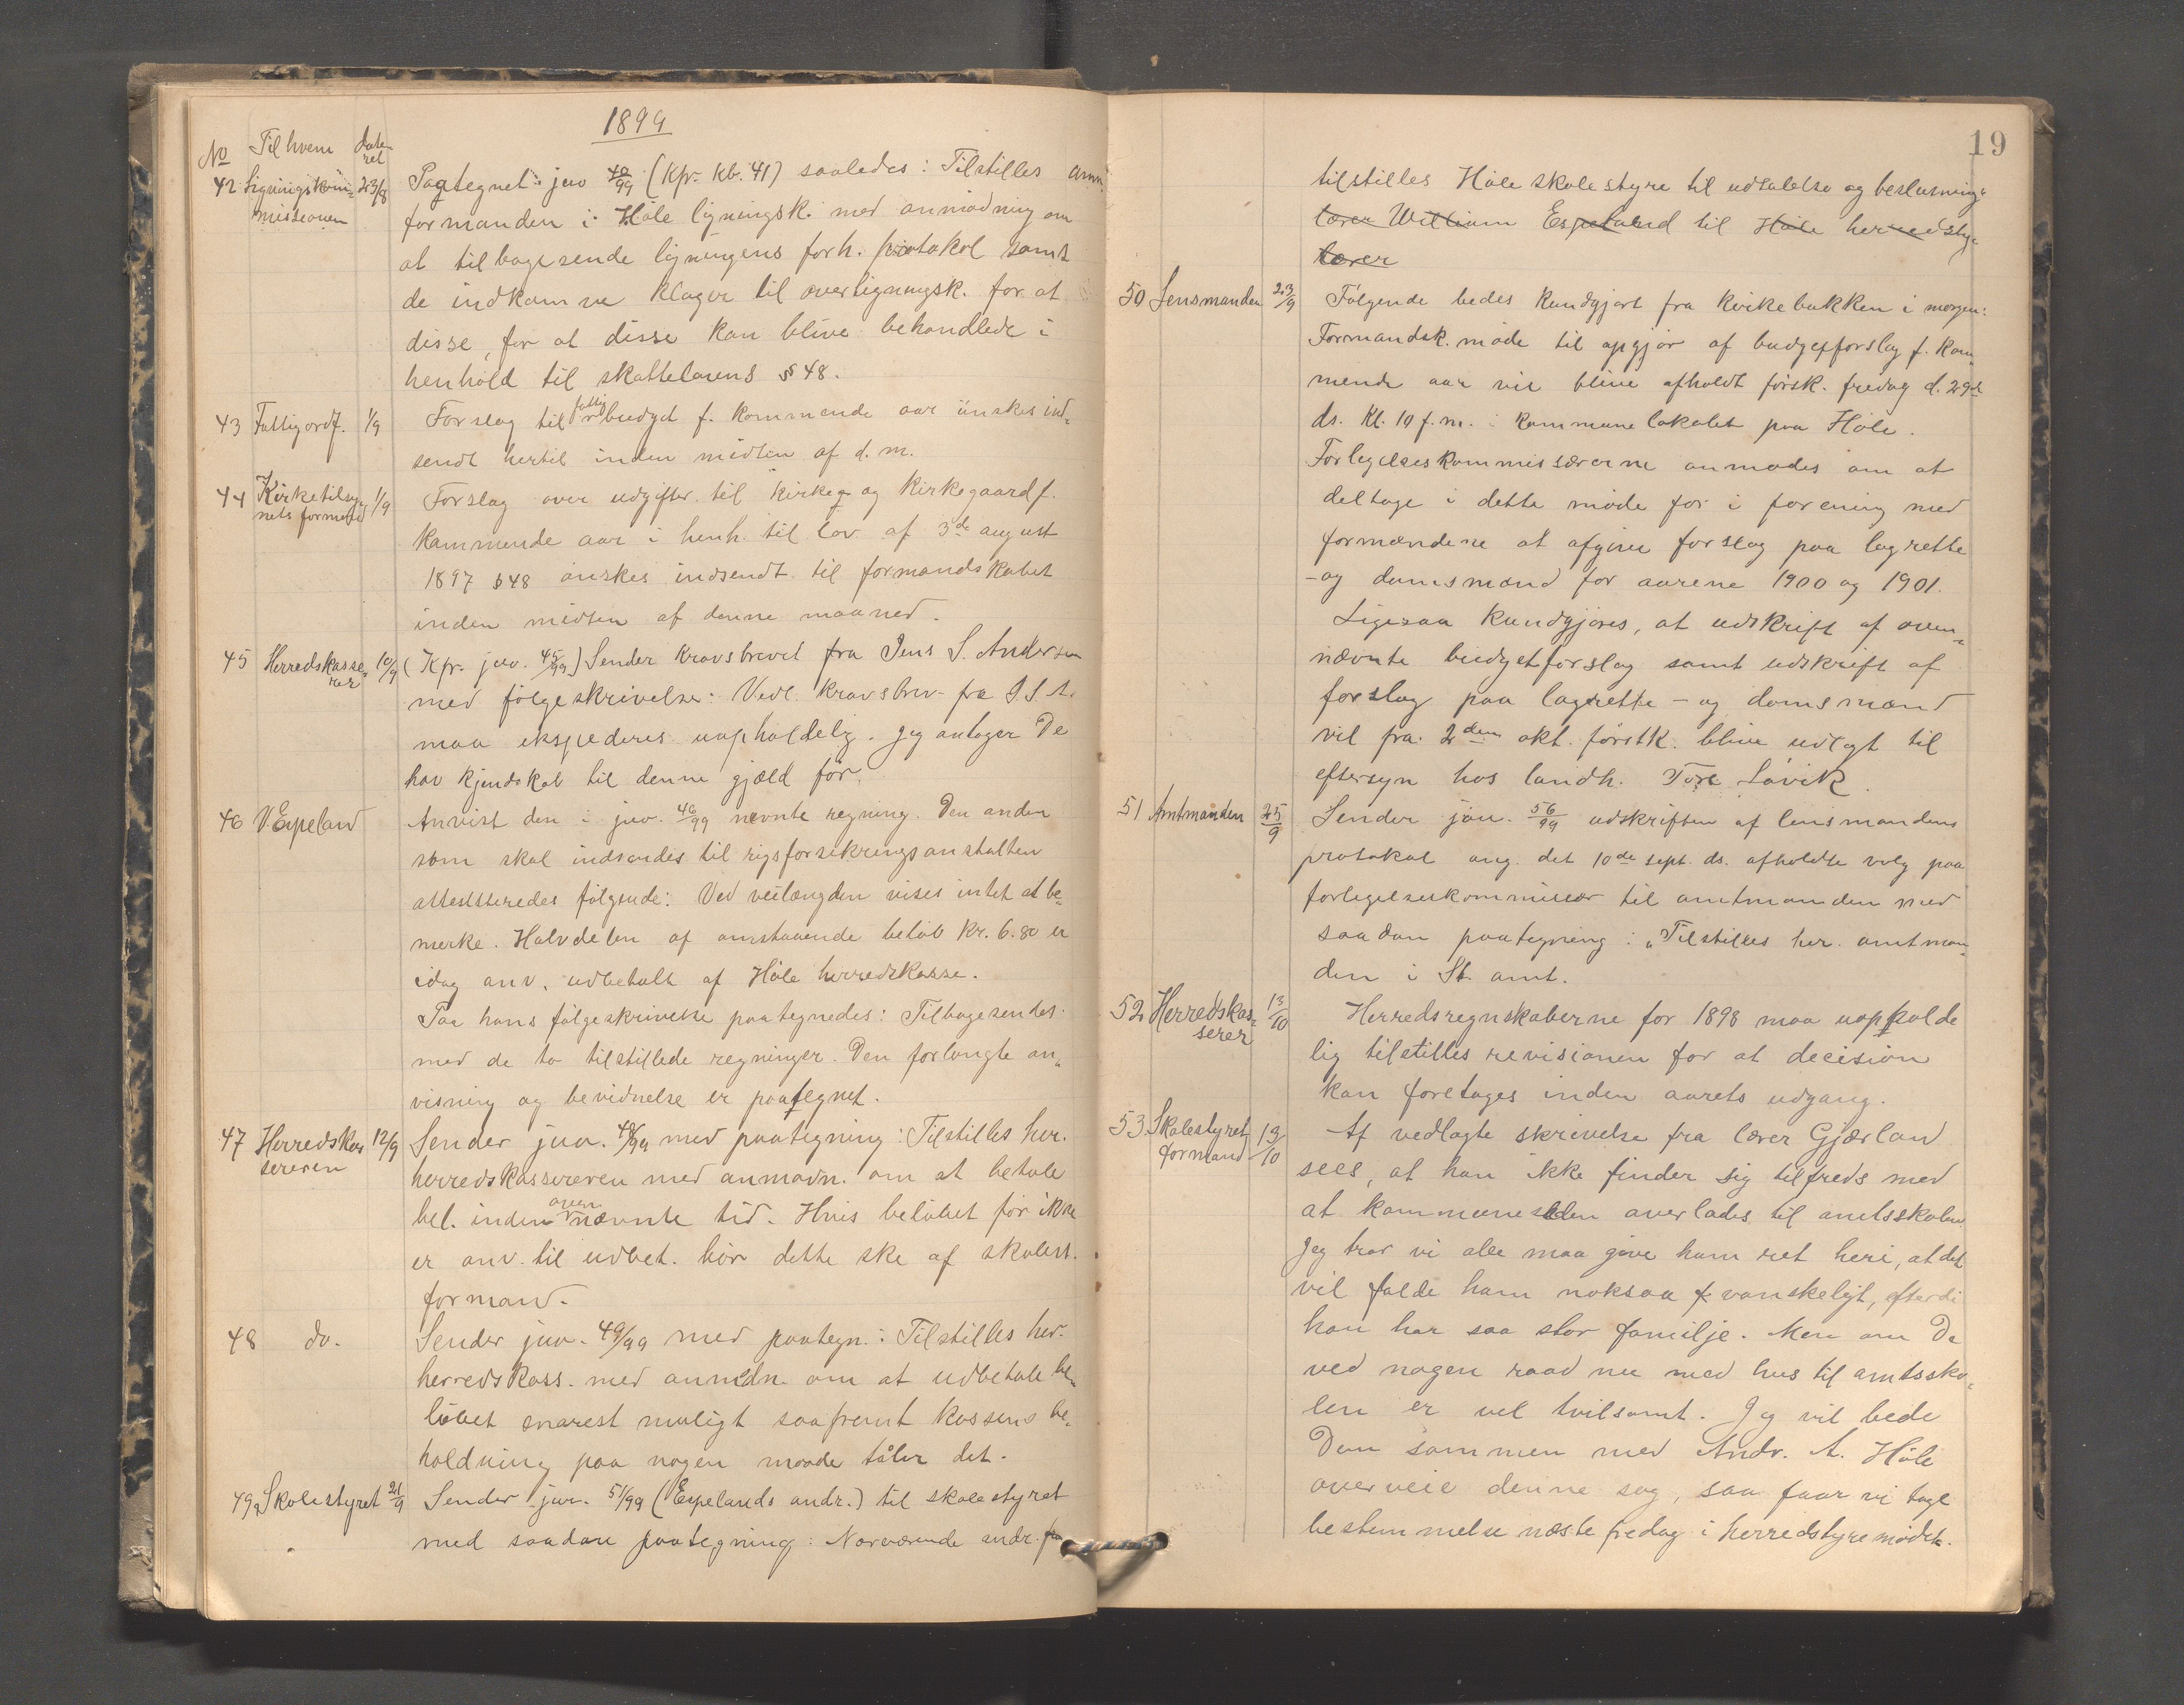 1899
No Til hvem Date-
ret
42 Ligningskom- 23/8 Paategnet juv 40/99 (Kpr. kb. 41) saaledes: Tilstilles
missionen formanden i Høle ligningsk. med anmodning om
at tilbagesende ligningens forh. protokol samt
de indkomne klager til overligningsk. for at
disse, for at disse kan blive behandlede i
henhold til skattelovens § 48.
43 Fattigordf. 1/9 Forslag til fattigbudget f. kommende aar ønskes ind-
sendt hertil inden midten af d. m.
44 Kirketilsy- 1/9 Forslag over udgifter til kirke og kirkegaard f.
nets formand kommende aar i henh. til lov af 3de august
1897 § 48 ønskes indsendt til formandskabet
inden midten af denne maaned.
45 Herredskasse- 10/9 (Kpr. juv. 45/99) Sender kravsbrevet fra Jens S. Andersen
rer med følgeskrivelse: Vedl. kravsbrev fra J. S. A.
maa ekspederes uopholdelig. Jeg antager De
har kjendskab til denne gjæld før.
46 V. Espeland Anvist den i juv. 46/99 nevnte regning. Den anden
som skal indsendes til rigsforsikringsanstalten
attesteredes følgende: Ved veilængden vises intet at be-
merke. Halvdelen af omstaaende beløb kr. 6.80 er
idag anv. udbetalt af Høle herredskasse.
Paa hans følgeskrivelse paategnedes: Tilbagesendes
med de to tilstillede regninger. Den forlangte an-
visning og bevidnelse er paategnet.
47 Herredskas- 12/9 Sender juv. 48/99 med paategning: Tilstilles her.
sereren herredskassereren med anmodn. om at betale
bel. inden ovennævnte tid. Hvis beløbet før ikke
er anv. til udbet. bør dette ske af skolest.
formand.
48 do. Sender juv. 49/99 med paategn.: Tilstilles her.
herredskass. med anmodn. om at udbetale be-
løbet snarest muligt saafremt kassens be-
holdning paa nogen maade tåler det.
49 Skolestyret 21/9 Sender juv. 51/99 (Espelands andr.) til skolestyret
med saadan paategning: Nærværende andr. fra
19
tilstilles Høle skolestyre til udtalelse og beslutning.
lærer William Espeland til Høle herredsty-
lærer
50 Lensmanden 23/9 Følgende bedes kundgjort fra kirkebakken i morgen:
Formandsk. møde til opgjør af budgetforslag f. kom-
mende aar vil blive afholdt førstk. fredag d. 29de
ds. kl. 10 f.m. i kommunelokalet paa Høle.
Forlegelseskommissærerne anmodes om at
deltage i dette møde for i forening med
formændene at afgive forslag paa lagrette
- og domsmænd for aarene 1900 og 1901.
Ligesaa kundgjøres, at udskrift af oven-
nævnte budgetforslag samt udskrift af
forslag paa lagrette- og domsmænd
vil fra 2den okt. førstk. blive udlagt til
eftersyn hos landh. Tore Løvik.
51 Amtmanden 25/9 Sender jou. 56/99 udskriften af lensmandens
protokol ang. det 10de sept. ds. afholdte valg paa
forlegelseskommissær til amtmanden med
saadan paategning: "Tilstilles her. amtman-
den i St. amt.
52 Herredskas- 13/10 Herredsregnskaberne for 1898 maa uopholde
serer lig tilstilles revisionen for at decision
kan foretages inden aarets udgang.
53 Skolestyrets 13/10 Af vedlagte skrivelse fra lærer Gjærlan
formand sees, at han ikke finder sig tilfreds med
at kommunelen overlades til amtsskolen.
Jeg tror vi alle maa give ham ret heri, at det
vil falde ham noksaa vanskeligt, efterdi
han har saa stor familje. Men om De
ved nogen raad nu med hus til amtssko-
len er vel tvilsomt. Jeg vil bede
Dem sammen med Andr. A. Høle
overveie denne sag, saa faar vi tage
bestemmelse næste fredag i herredstyremødet.